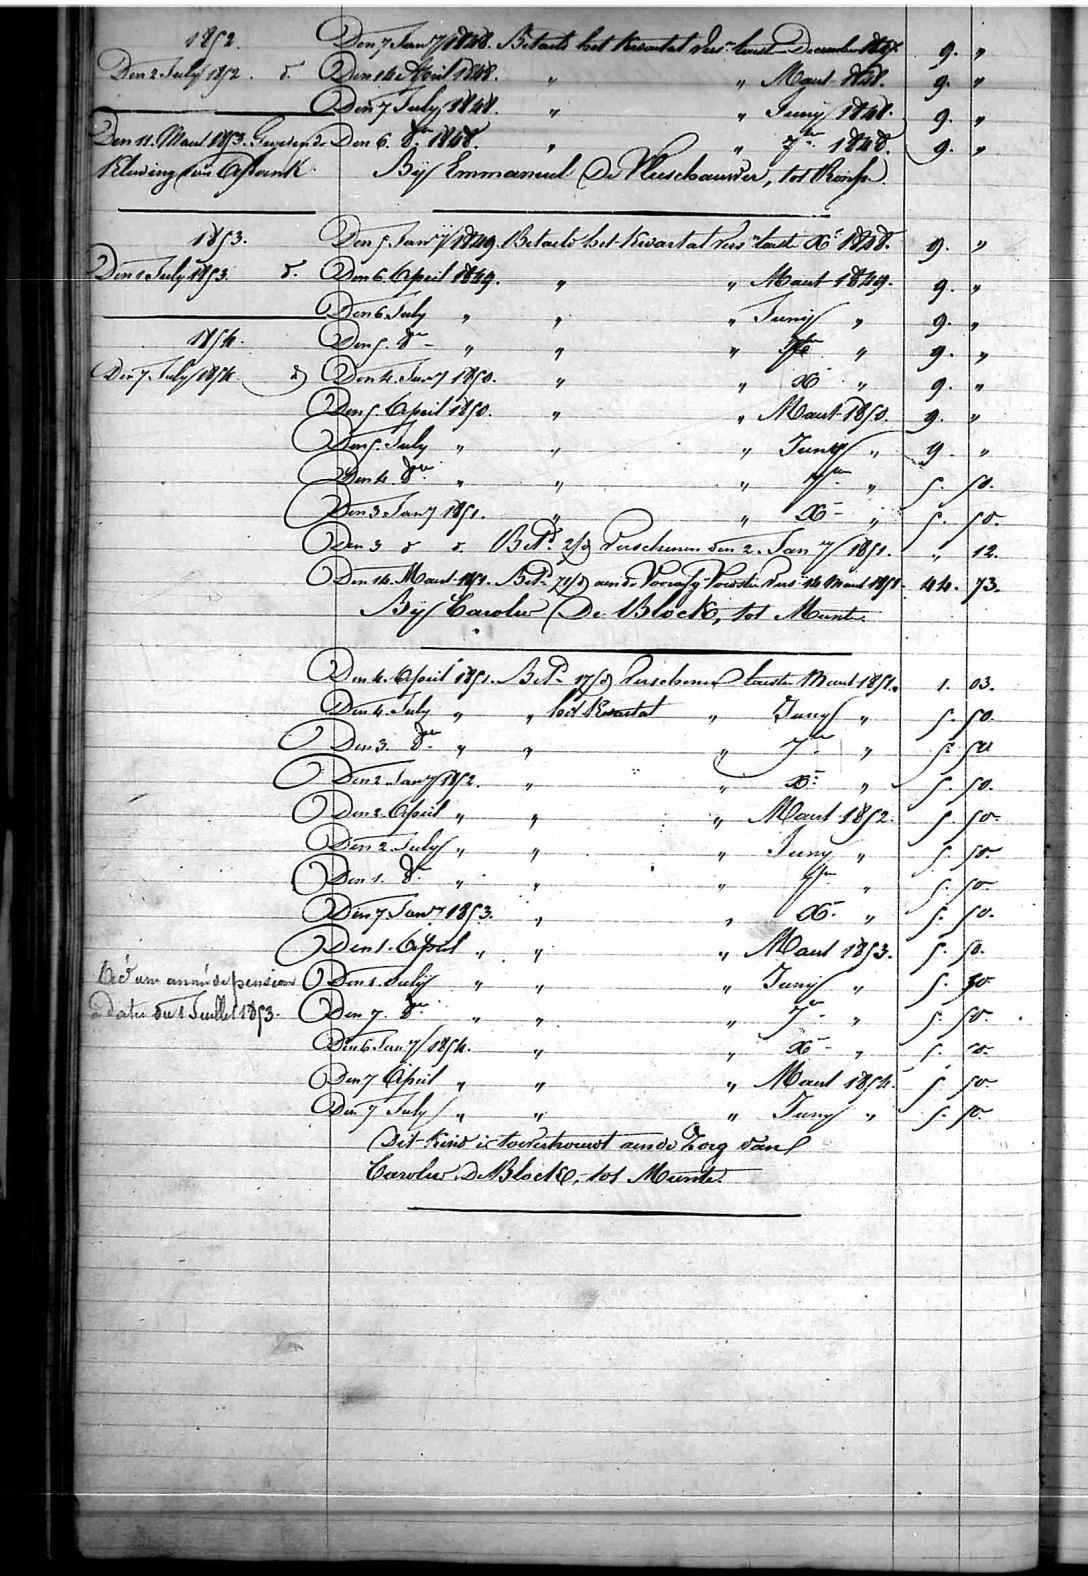 1852.
Den 2 July 1852. d.
Den 11. Maert 1853. Geweigerde
Kleeding van Afstank.
1853.
Den 1 July 1853. d.
1854.
Den 7. July 1854. d
année de pension
à dater du 1 Juillet 1853.
Den 7 Janry 1848. Betaelt het Kwartal vers. laest December 1847. 9. "
Den 14 April 1848. " " Maert 1848. 9. "
Den 7 July 1848. " " Juny 1848. 9. "
Den 6. 8er 1848. " " 7er 1848. 9. "
Bij Emmanuel De Vleeschauwer, tot Ronse.
Den 5 Janry 1849. Betaeld het Kwartal vers. laest Xr 1848. 9. "
Den 6. April 1849. " " Maert 1849. 9. "
Den 6 July " " " Juny " 9. "
Den 5. 8er " " " 7er " 9. "
Den 4. Janry 1850. " " Xr " 9. "
Den 5. April 1850. " " Maert 1850. 9. "
Den 5. July " " " Juny " 9. "
Den 4. 8er " " " 7er " 5. 50.
Den 3 Janry 1851. " " Xr " 5. 50.
Den 3 d d. Betd. 2/d Verschenen den 2. Jan ry 1851. " 12.
Den 14. Maert 1851. Betd. 71/d aen de Voedster vers 14 Maert 1851. 44. 73.
Bij Carolus De Block, tot Munte.
Den 4. April 1851. Betd. 17/d Verschenen laeste Maert 1851. 1. 03.
Den 4. July " " het Kwartal " Juny " 5. 50.
Den 3. 8er " " " 7er " 5. 50
Den 2. Janry 1852. " " Xr " 5. 50.
Den 2. April " " " Maert 1852. 5. 50.
Den 2. July " " " Juny " 5. 50.
Den 1. 8er " " " 7er " 5. 50
Den 7. Janry 1853. " " Xr " 5. 50.
Den 1. April " " " Maert 1853. 5. 50.
Den 1. July " " " Juny " 5. 50
Den 7. 8er " " " 7er " 5. 50.
Den 6 Janry 1854. " " Xr " 5. 50.
Den 7 April " " " Maert 1854. 5. 50
Den 7 July " " " Juny " 5. 50.
Dit Kind is toevertrouwt aen de Zorg van
Carolus De Block, tot Munte.